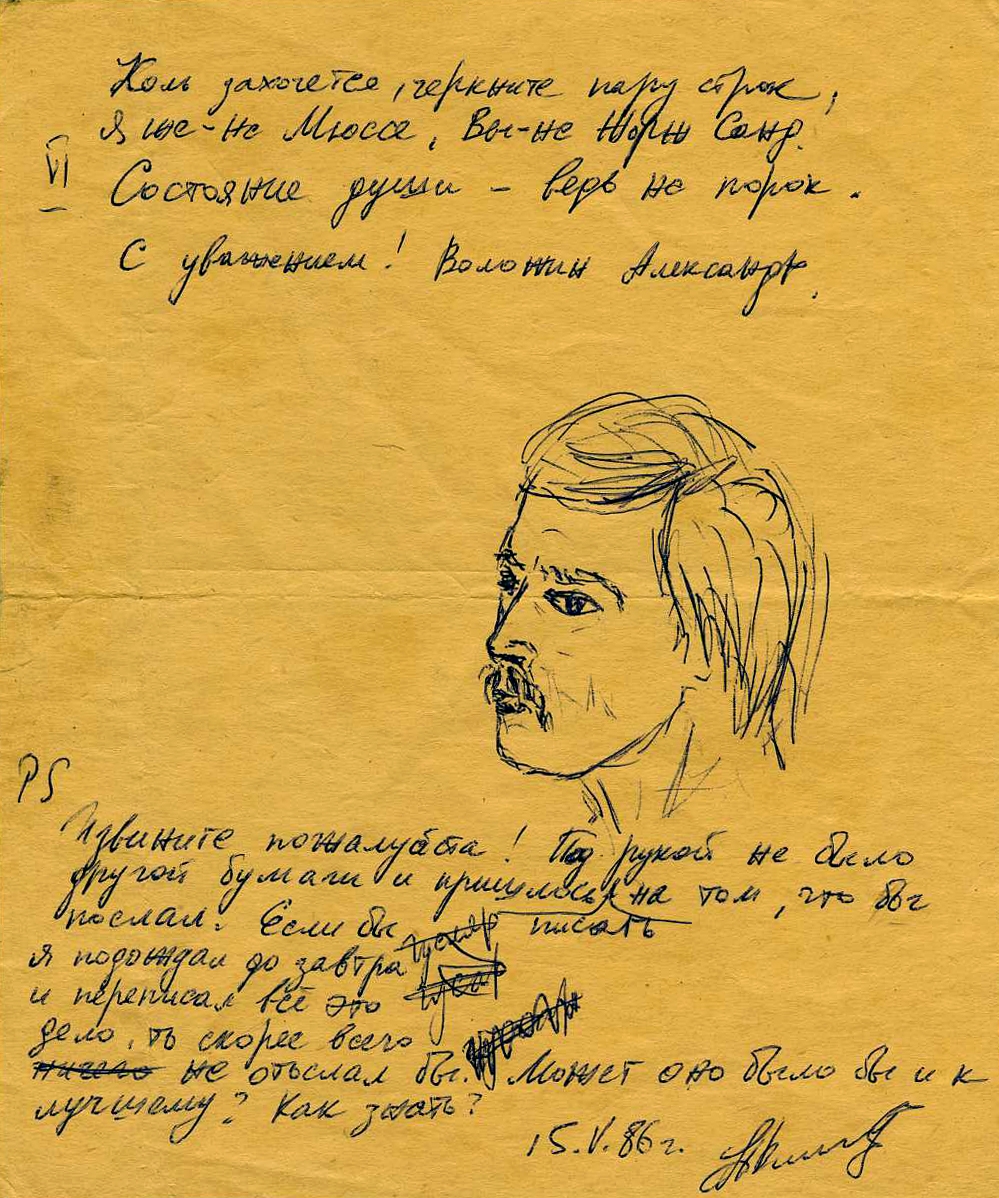 Коль захочется, черкните пару строк,
Я же - не Мюссе, Вы - не Жорж Санд.
VI
Состояние души - ведь не порок.
С уважением! Воложин Александр.
PS
Извините пожалуйста! Под рукой не было
другой бумаги и пришлось на том, что бы
послал. Если бы писать
я подождал до завтра
и переписал всё это
дело, то скорее всего
ничего не отослал бы. Может оно было бы и к
лучшему? Как знать?
15.V.86г.